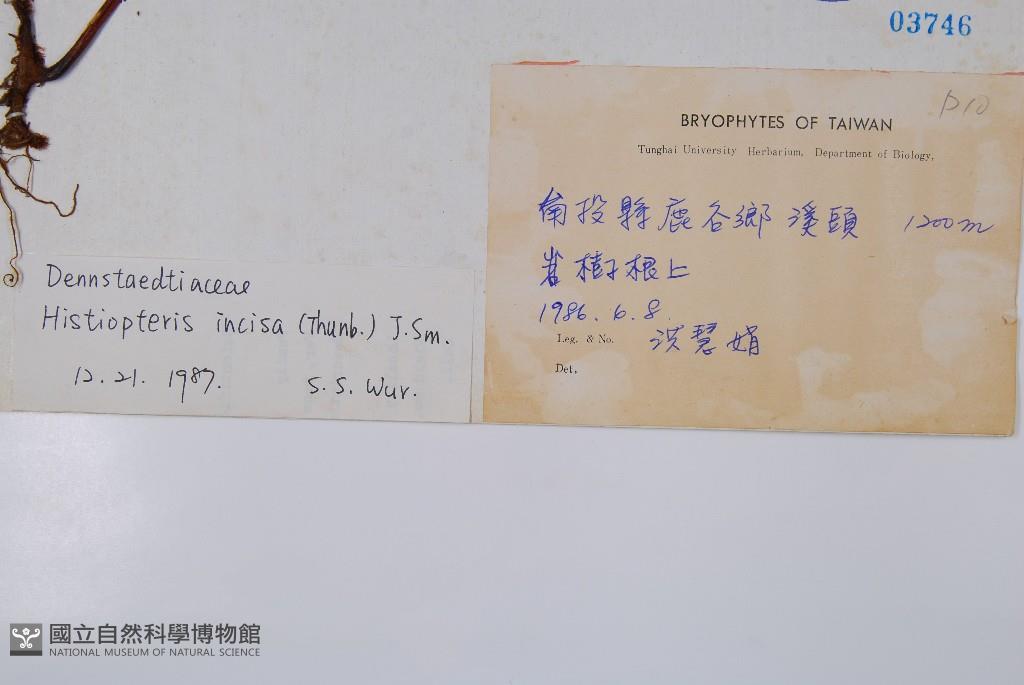 03746
D10
BRYOPHYTES OF TAIWAN
Tunghai University Herbarium, Department of Biology,
南投縣鹿谷鄉溪頭 1200m
樹根上
1986. 6. 8.
Leg. & No. 洪慧娟
Det.
Dennstaedtiaceae
Histiopteris incisa (Thunb.) J.Sm.
12. 21. 1987. S. S. Wur.
國立自然科學博物館
NATIONAL MUSEUM OF NATURAL SCIENCE